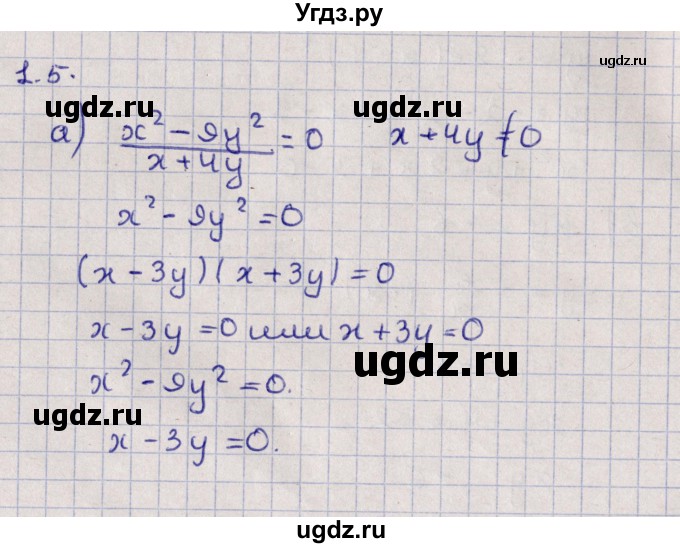 Угдз.ру
1.5.
ugdz.ru
ugdz.ru ugdz.ru
а) (x² - 9y²)/(x + 4y) = 0   x + 4y ≠ 0
x² - 9y² = 0
(x - 3y)(x + 3y) = 0
x - 3y = 0 или x + 3y = 0
ugdz.ru
x² - 9y² = 0.
ugdz.ru
x - 3y = 0.
ugdz.ru